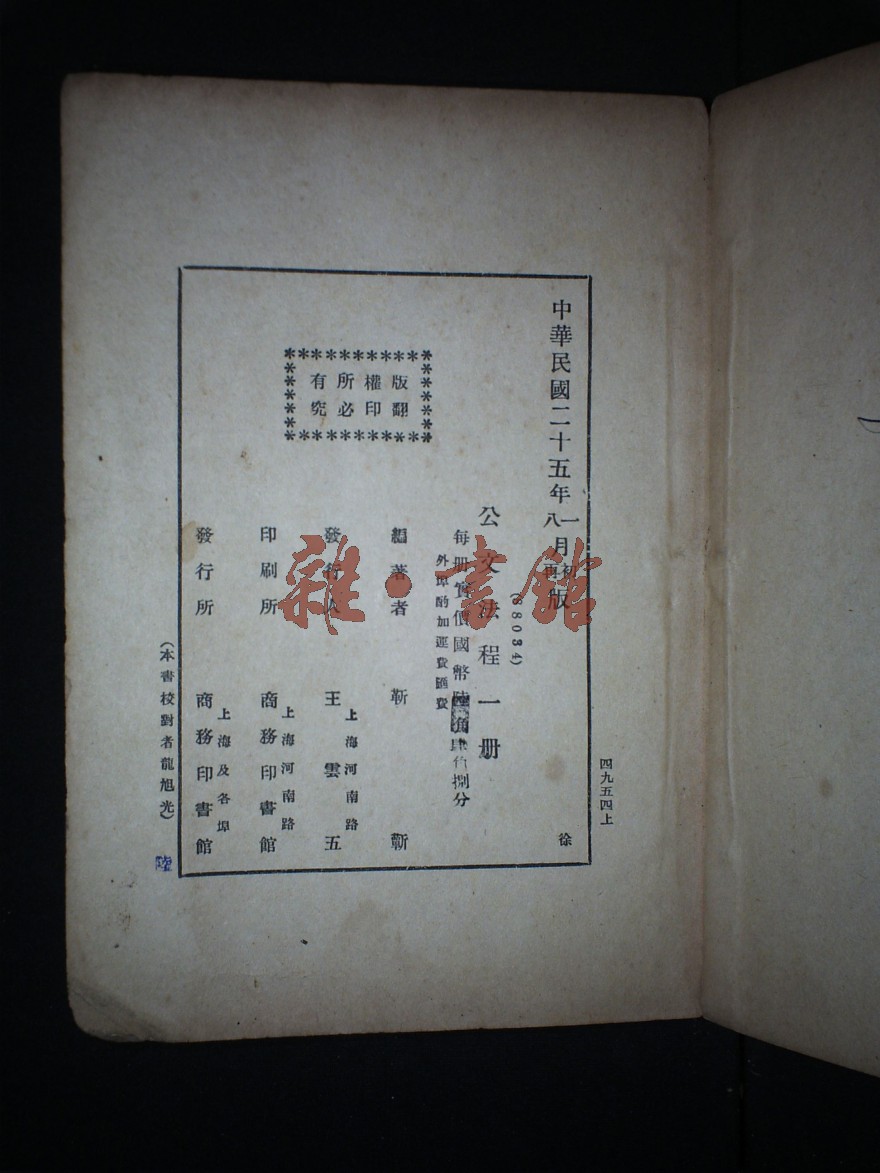 四九五四上
中華民國二十五年一月初版
八月再版
徐
(88034)
公文法程一册
每册實價國幣
外埠酌加運費匯費
編著者 靳 靳
發行人 王雲五
上海河南路
印刷所 商務印書館
上海河南路
發行所 商務印書館
上海及各埠
版權所有
翻印必究
(本書校對者龍旭光)
陸
雜·書館